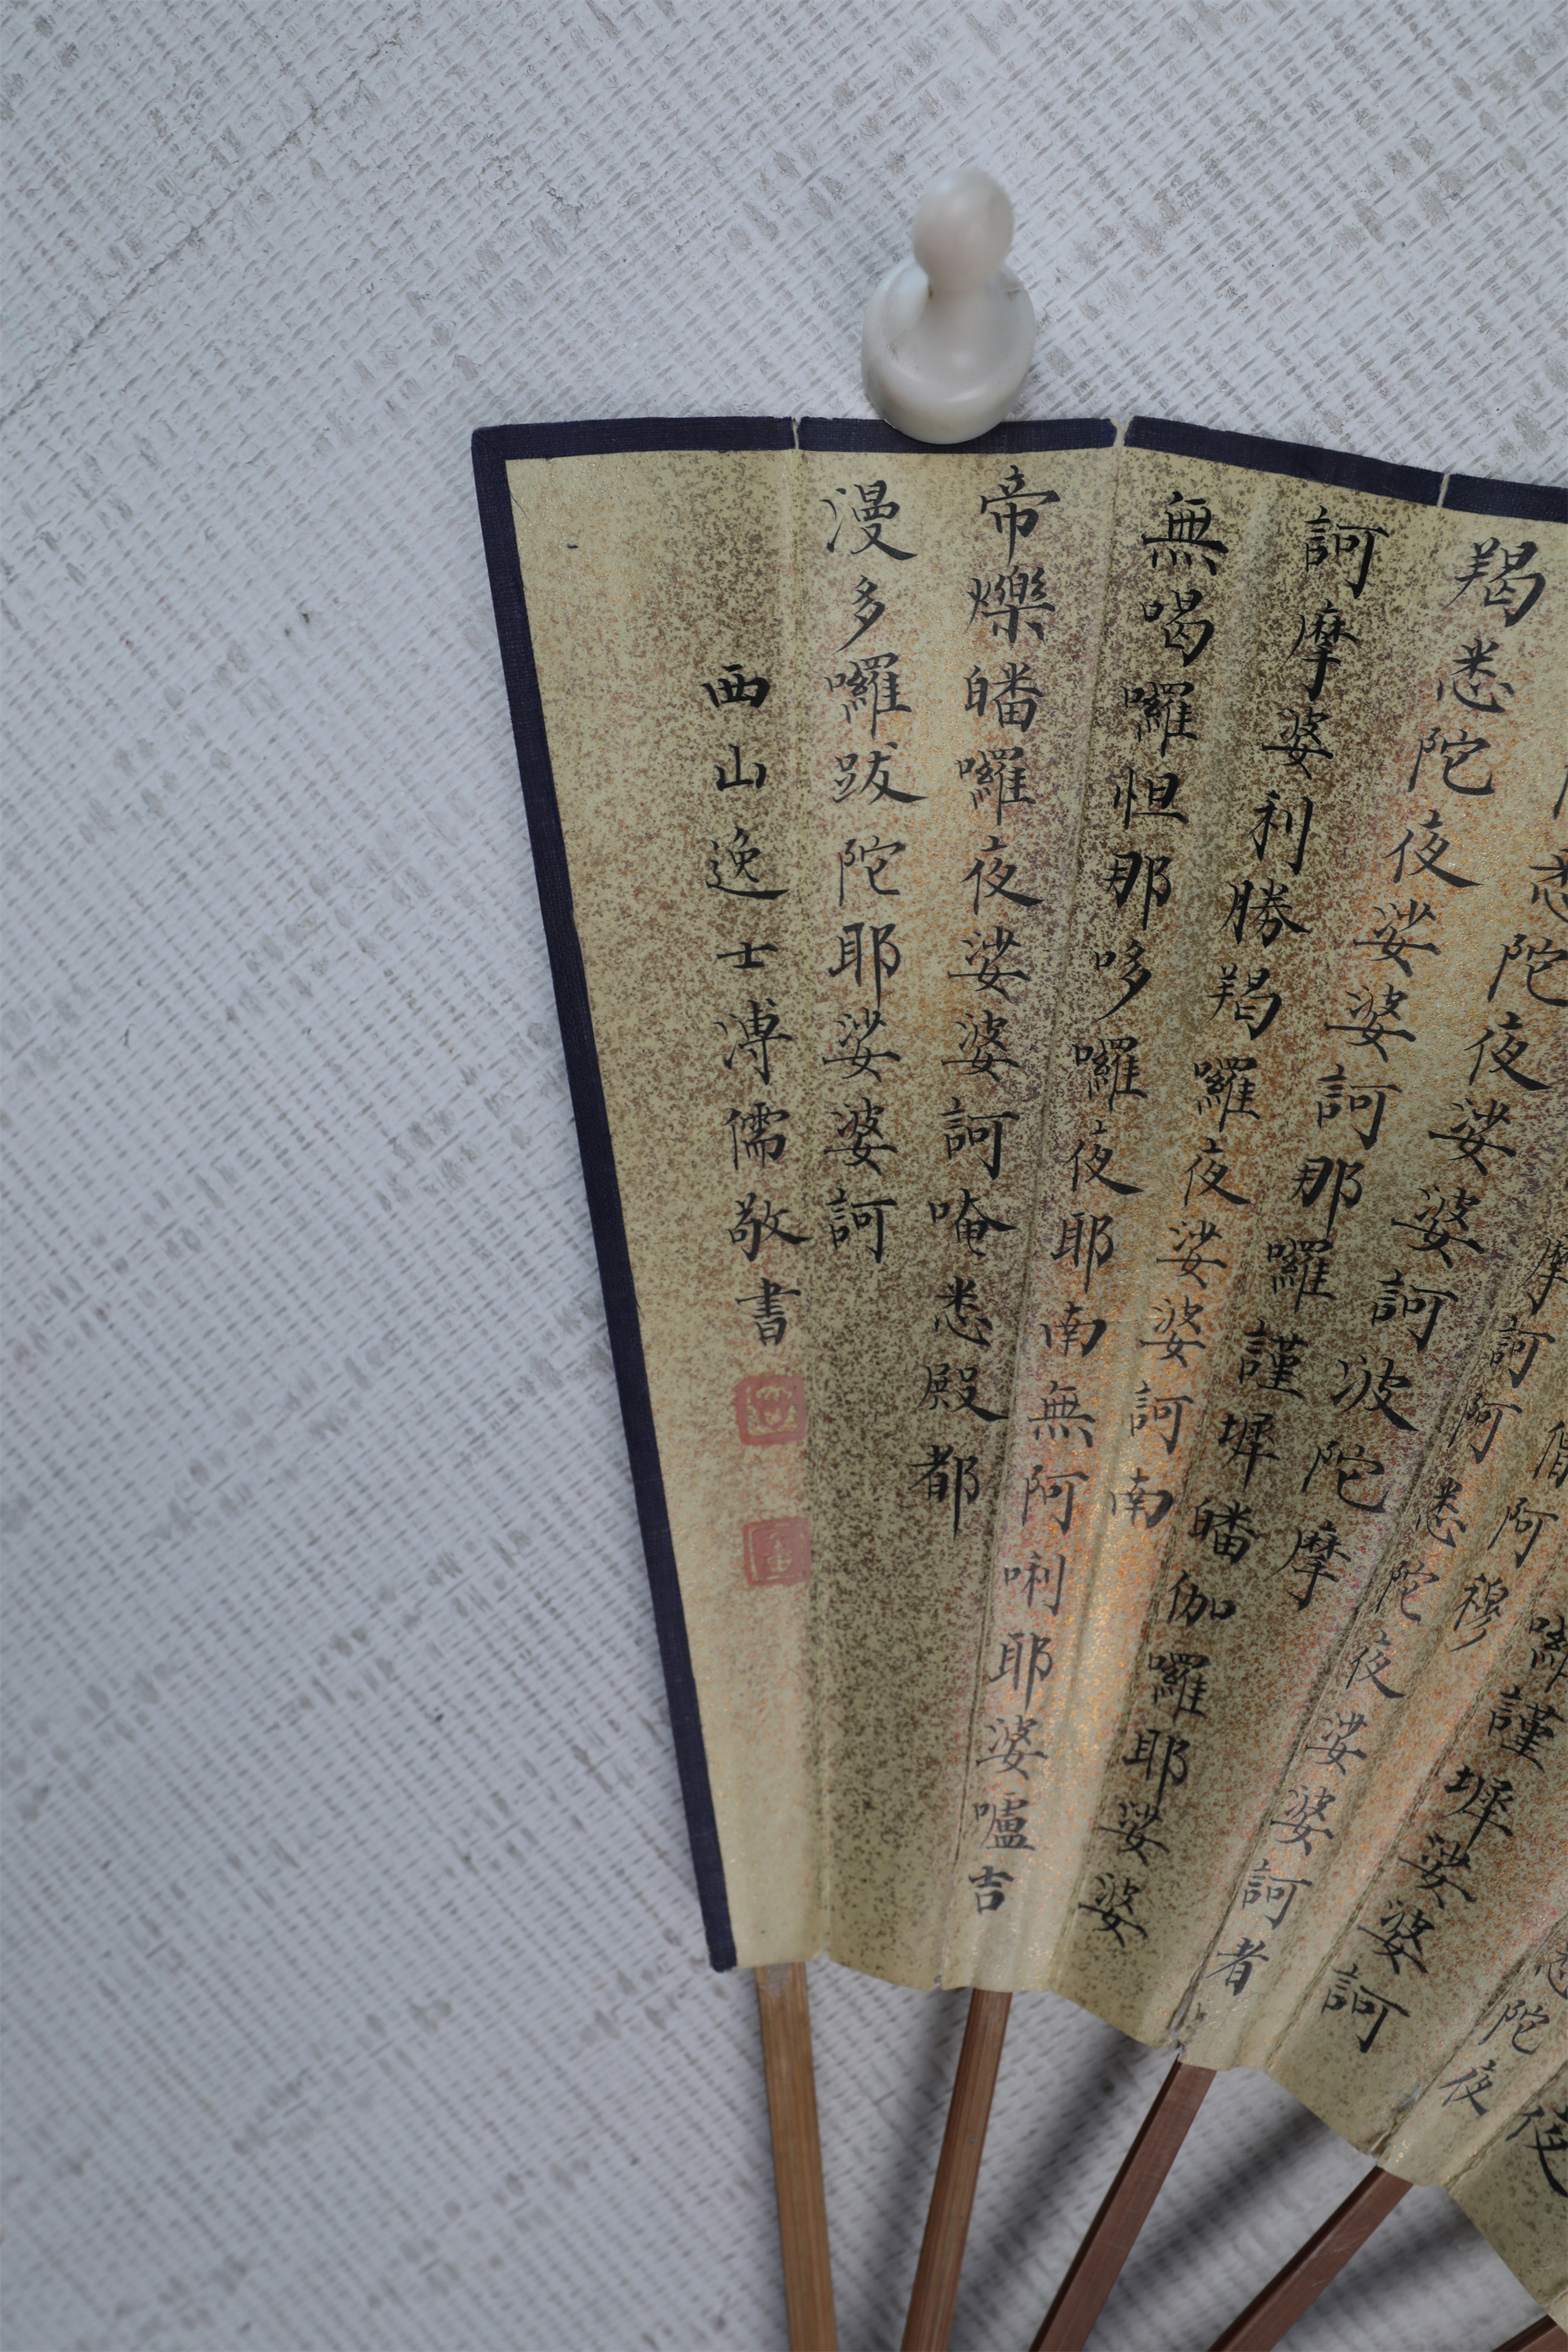 悉陀夜
囉謹墀娑婆訶
僧阿穆
摩訶阿悉陀夜娑婆訶者
悉陀夜娑婆訶波陀摩
羯悉陀夜娑婆訶那囉謹墀皤伽囉耶娑婆
訶摩婆利勝羯囉夜娑婆訶南
無喝囉怛那哆囉夜耶南無阿唎耶婆嚧吉
帝爍皤囉夜娑婆訶唵悉殿都
漫多囉跋陀耶娑婆訶
西山逸士溥儒敬書